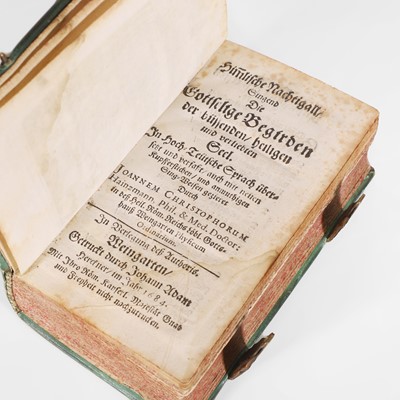 Himlische Nachtigall/
Singend
Die
Gottselige Begirden
der büssenden/ heiligen
und verliebten
Seel.
In Hoch-Teutsche Sprach über-
setzt und verfaßt, auch mit netten
Kupfferstichen/ und anmuthigen
Sing-Weisen gezieret
Durch
JOANNEM CHRISTOPHORUM
Hainzmann, Phil. & Med. Doctor:
in deß Heil. Röm. Reichs löbl. Gotts-
hauß Weingarten Physicum
Ordinarium.
In Verlegung deß Authoris.
Weingarten/
Getruckt durch Johann Adam
Herckner, im Jahr 1684.
Mit Ihro Röm. Kayserl. Majestät Gnad
und Freyheit nicht nachzutrucken.